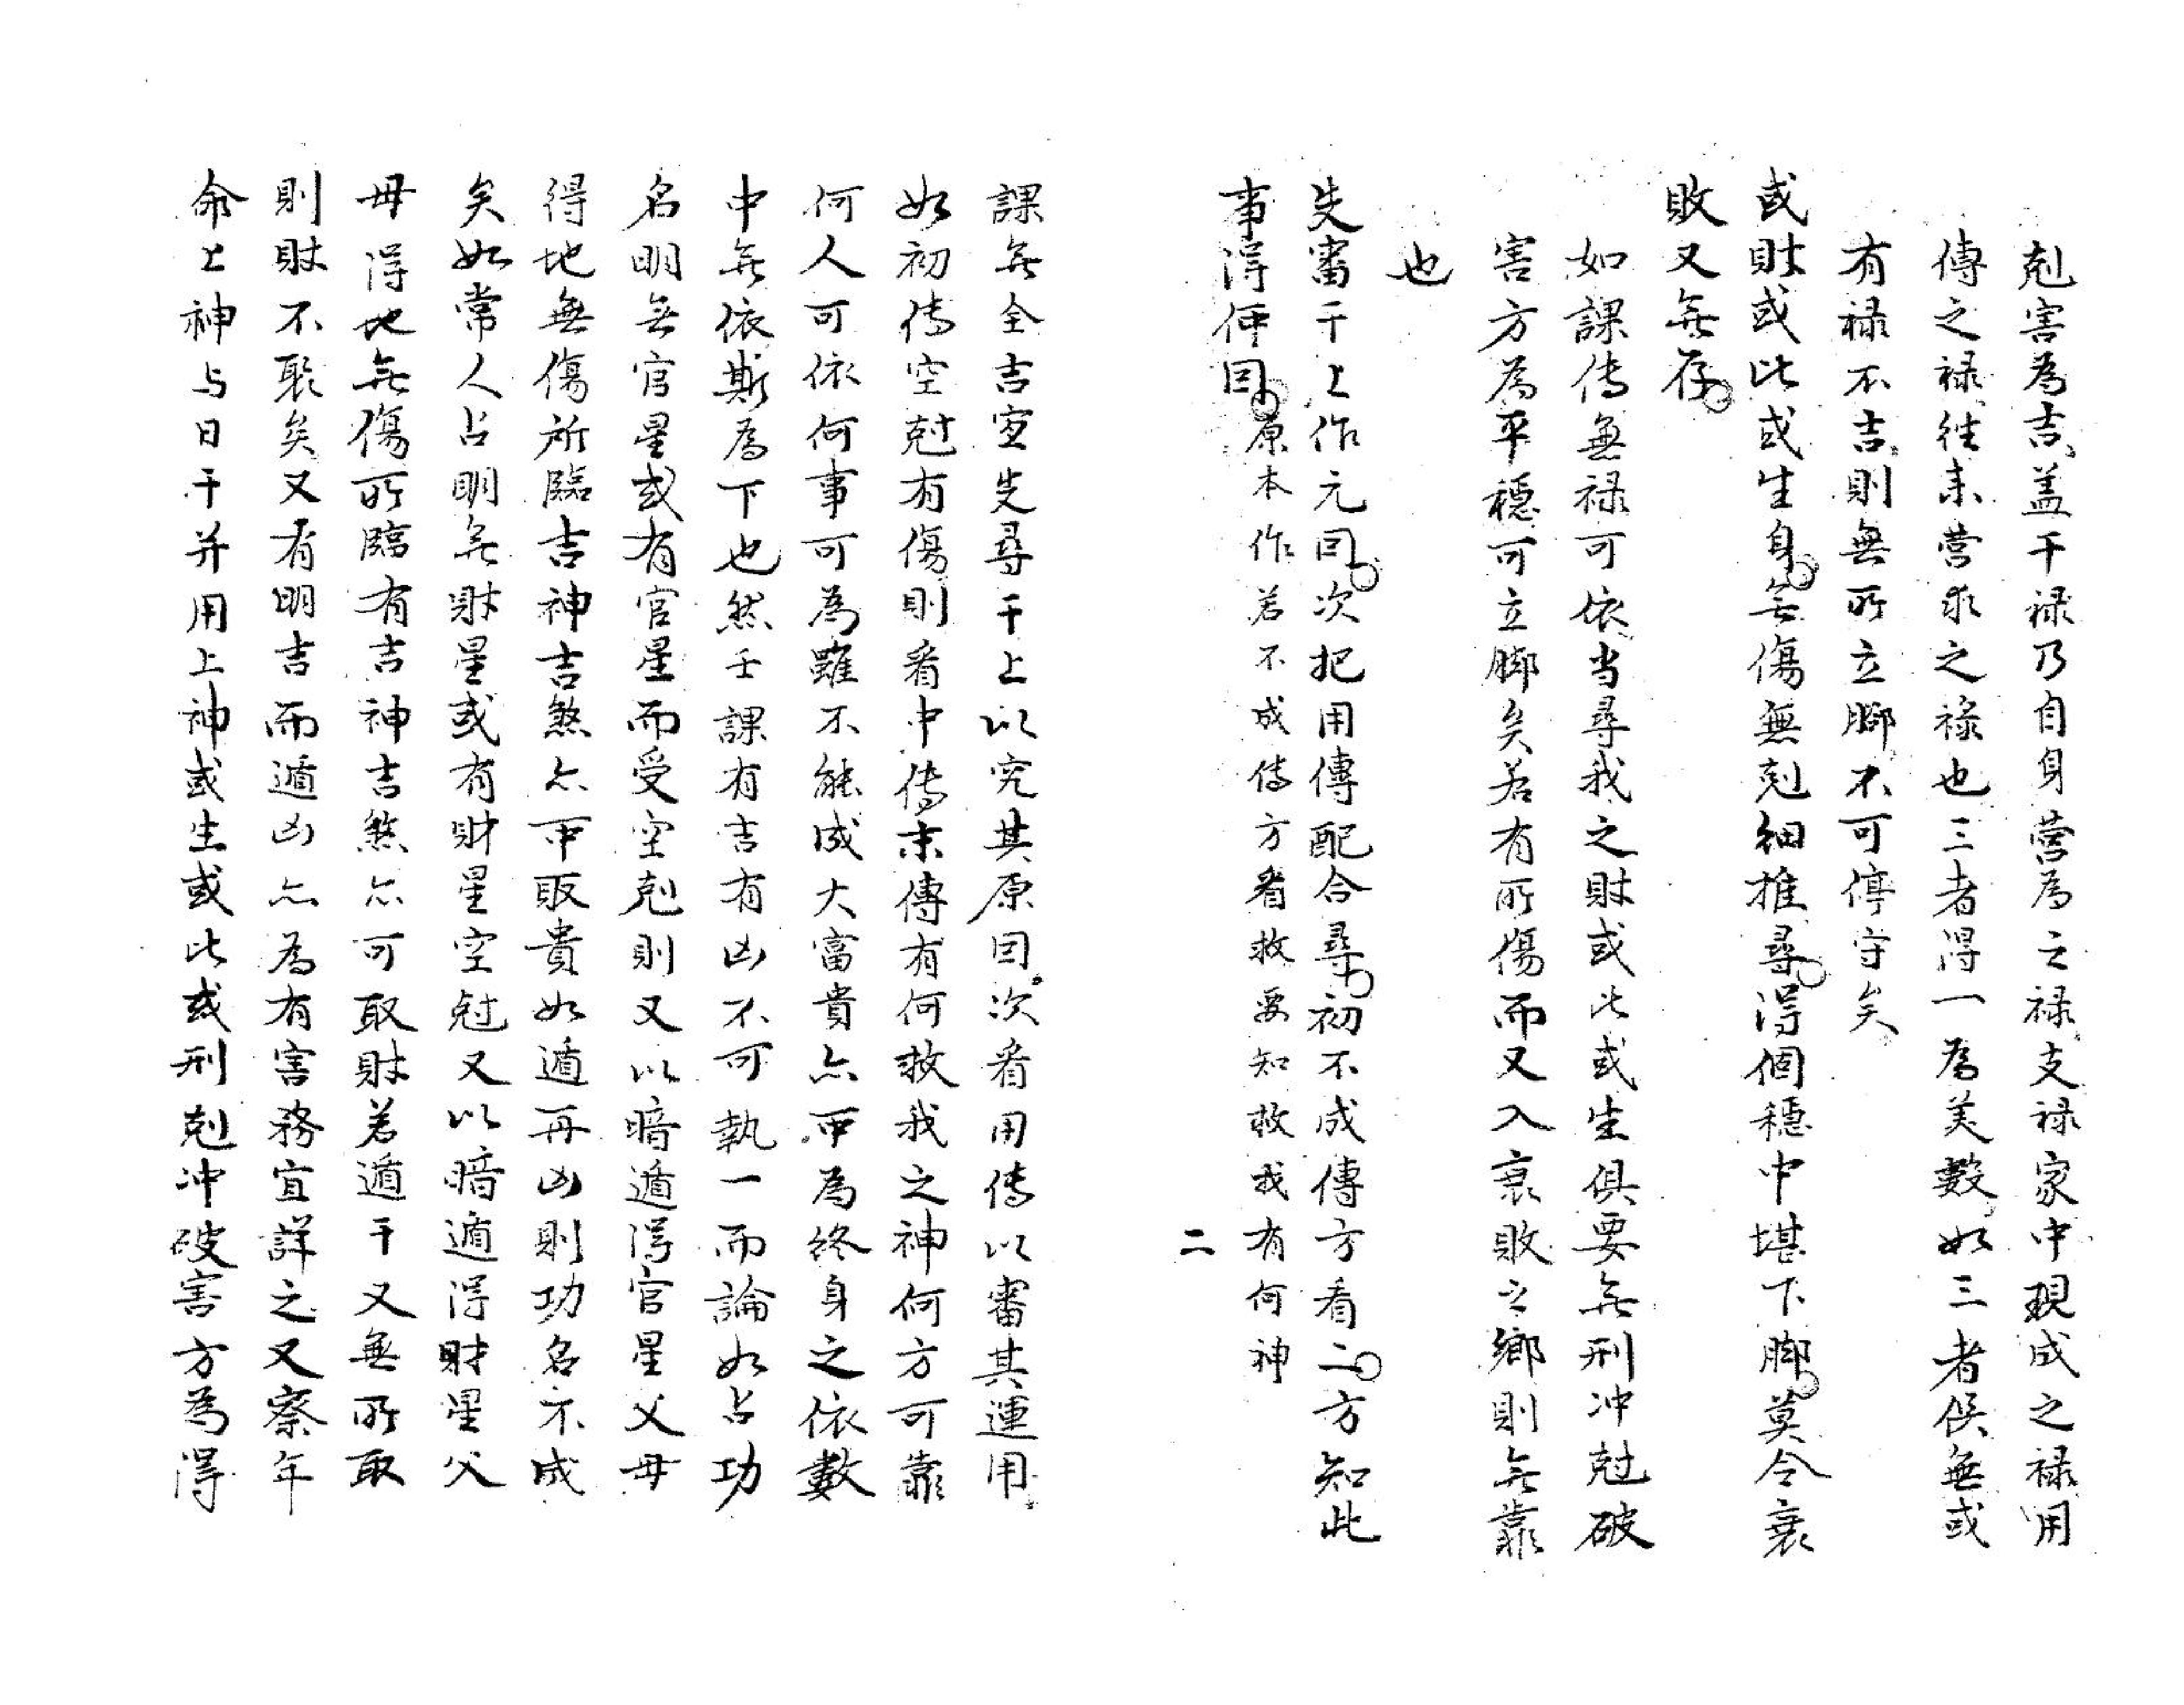 尅害為吉盖干禄乃自身营為之禄支禄家中現成之禄用
傳之禄往来营求之祿也三者得一為美數如三者俱無或
有禄不吉則無所立脚不可停守矣
或財或比或生身無傷無尅細推尋得個穩中堪下脚莫令衰
敗又無存
如課传無禄可依当尋我之財或比或生俱要無刑冲尅破
害方為平穩可立脚矣若有所傷而又入衰敗之鄉則無靠
也
先審干上作元因次把用傳配合尋初不成傳方看二方知此
事得伸因原本作若不成传方看救要知救我有何神
二
課無全吉宜先尋干上以究其原因次看用传以審其運用
如初传空尅有傷則看中传末傳有何救我之神何方可靠
何人可依何事可為雖不能成大富貴亦可為終身之依數
中無依斯為下也然壬課有吉有凶不可執一而論如占功
名明無官星或有官星而受空尅則又以暗遁得官星父母
得地無傷所臨吉神吉煞亦可取貴如遁再凶則功名不成
矣如常人占明無財星或有財星空尅又以暗遁得財星父
母得地無傷所臨有吉神吉煞亦可取財若遁干又無所取
則財不聚矣又有明吉而遁凶亦為有害務宜詳之又察年
命上神与日干并用上神或生或比或刑尅冲破害方為得